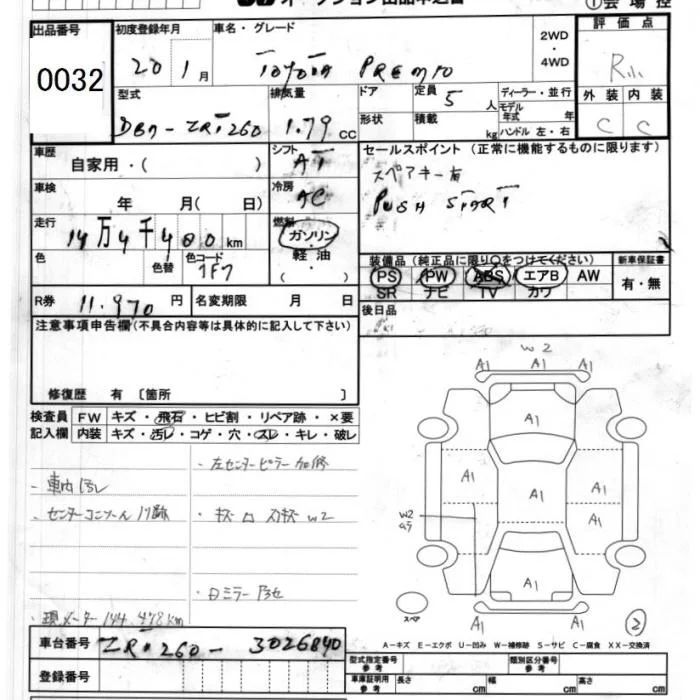 出品番号
0032
初度登録年月
20 1月
車名・グレード
TOYOTA PREMIO
2WD
・
4WD
評価点
R小
外装 内装
C C
型式
DBA-ZRT260
排気量
1.79 cc
ドア
定員 5 人
形状
積載 kg
ディーラー・並行
モデル年式 年
ハンドル 左・右
車歴
自家用・( )
シフト
AT
車検
年 月( 日)
冷房
AC
走行
14万4千400km
燃料
ガソリン・
軽油・
( ・ )
色
色替
色コード
1F7
R券 11.970 円
名変期限 月 日
セールスポイント (正常に機能するものに限ります)
スペアキー有
PUSH START
装備品 (純正品に限り○をつけてください)
PS PW ABS エアB AW
SR ナビ TV カワ
新車保証書
有・無
後日品
注意事項申告欄(不具合内容等は具体的に記入して下さい)
修復歴 有 〔箇所 〕
検査員記入欄
FW キズ・飛石・ヒビ割・リペア跡・×要
内装 キズ・汚レ・コゲ・穴・スレ・キレ・破レ
・左センターピラー加修
・車内汚レ
・センターコンソールノリ跡
・現メーター 144.478km
W2
A1 A1 A1
A1
A1 A1 A1
A1
A1
A1 A1
W2
スペア
2
A-キズ E-エクボ U-凹み W-補修跡 S-サビ C-腐食 XX-交換済
車台番号 ZRT260-3026840
登録番号
型式指定番号
参考
類別区分番号
参考
車庫証明用
参考
長さ cm 幅 cm 高さ cm